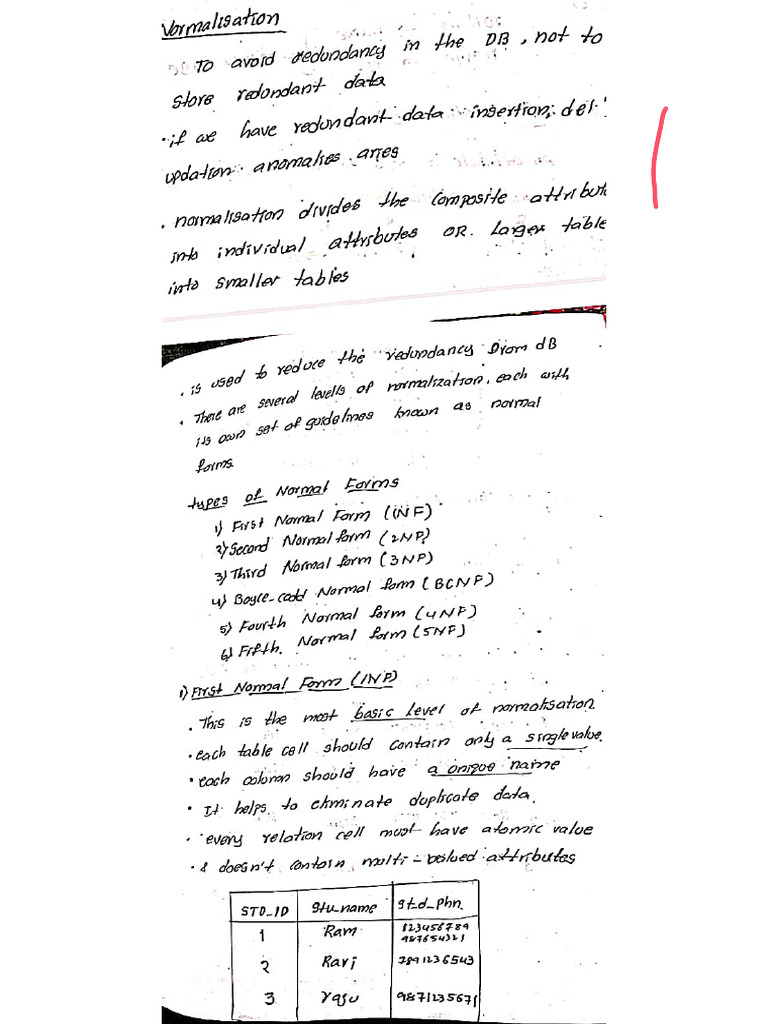 Normalisation
To avoid redundancy in the DB, not to
store redundant data
. if we have redundant data insertion, del
updation anomalies aries
. normalisation divides the composite attribute
into individual attributes OR Larger table
into smaller tables
. is used to reduce the redundancy Drom dB
. There are several levells of normalization, each with
its own set of guidelines known as normal
forms.
types of Normal Forms
1) First Normal Form (1NF)
2) Second Normal form (2NF)
3) Third Normal form (3NF)
4) Boyce-codd Normal form (BCNF)
5) Fourth Normal form (4NF)
6) Fifth. Normal form (5NF)
1) First Normal Form (1NF)
. This is the most basic level of normalisation.
. each table cell should contain only a single value.
. each column should have a unique name
. It helps to eliminate duplicate data.
. every relation cell must have atomic value
. & doesn't contain multi-valued attributes
STD_ID Stu_name Std_Phn.
1 Ram 123456789
987654321
2 Ravi 7891236543
3 Vasu 9871235671